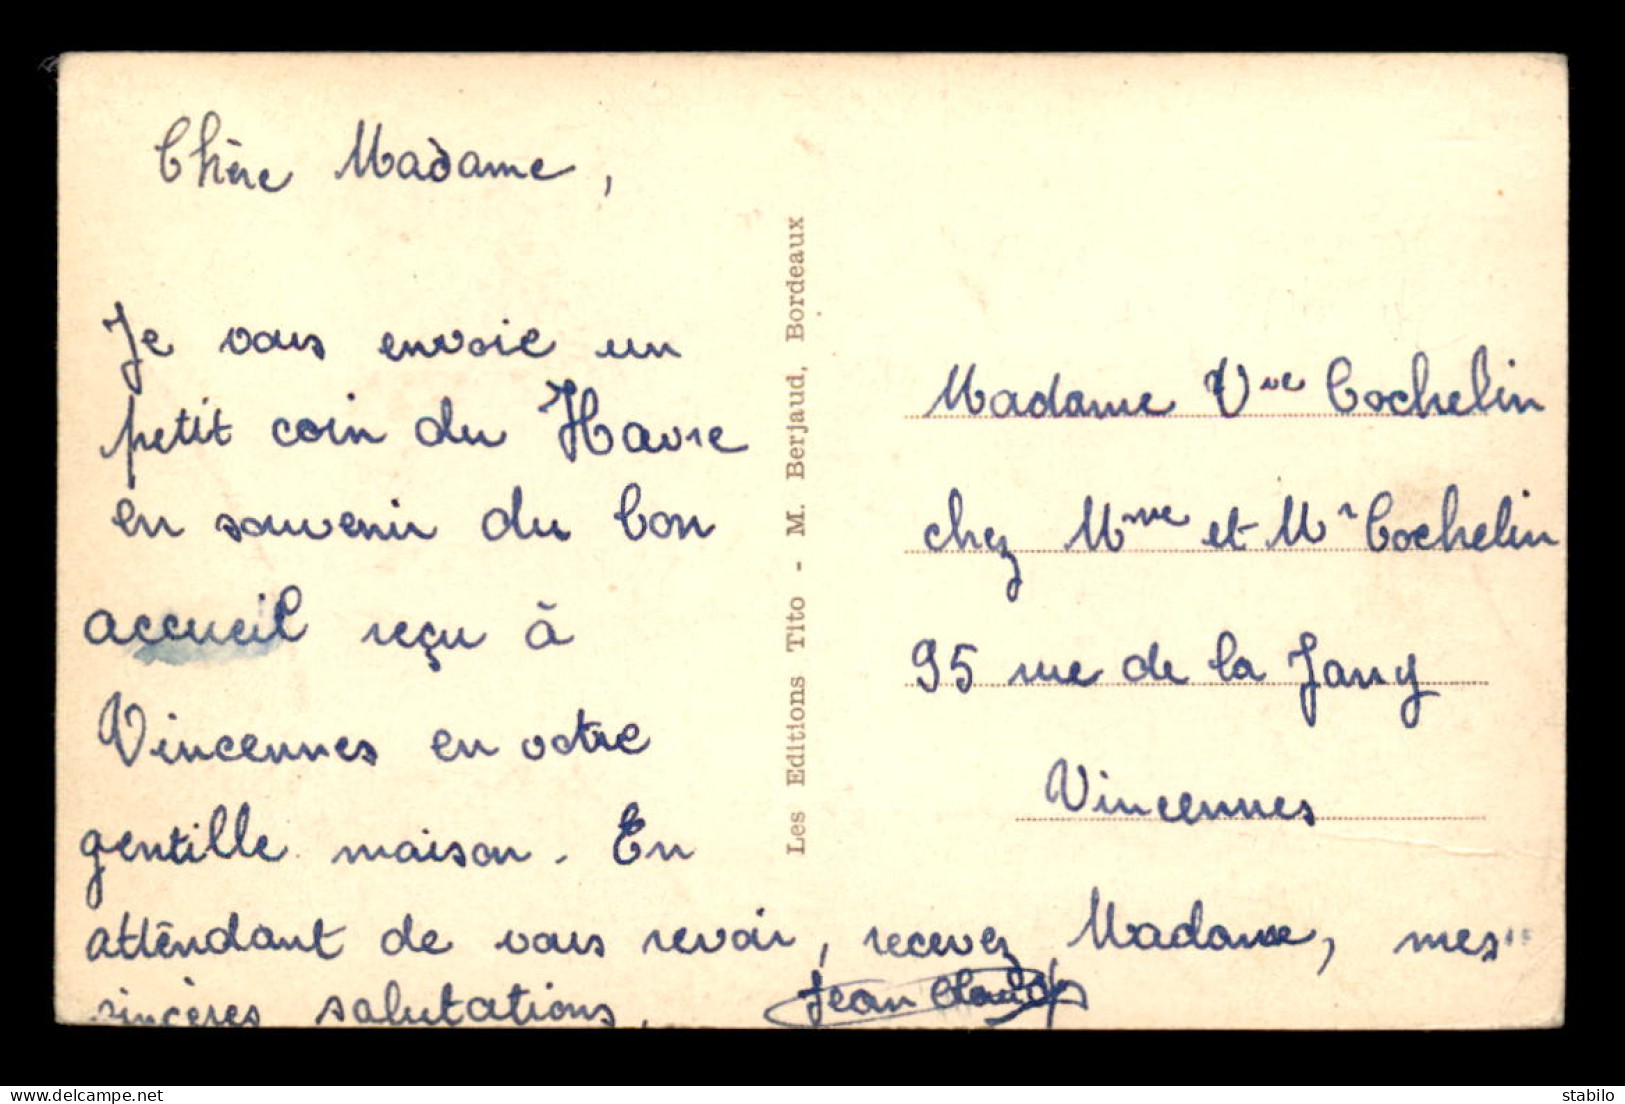 Chère Madame,
Je vous envoie un
petit coin du Havre
en souvenir du bon
accueil reçu à
Vincennes en votre
gentille maison. En
attendant de vous revoir, recevez, Madame, mes
sincères salutations.
Jean Claude
Les Editions Tito - M. Berjaud, Bordeaux
Madame Vve Cochelin
chez Mme et Mr Cochelin
95 rue de la Jarry
Vincennes
delcampe.net
stabilo